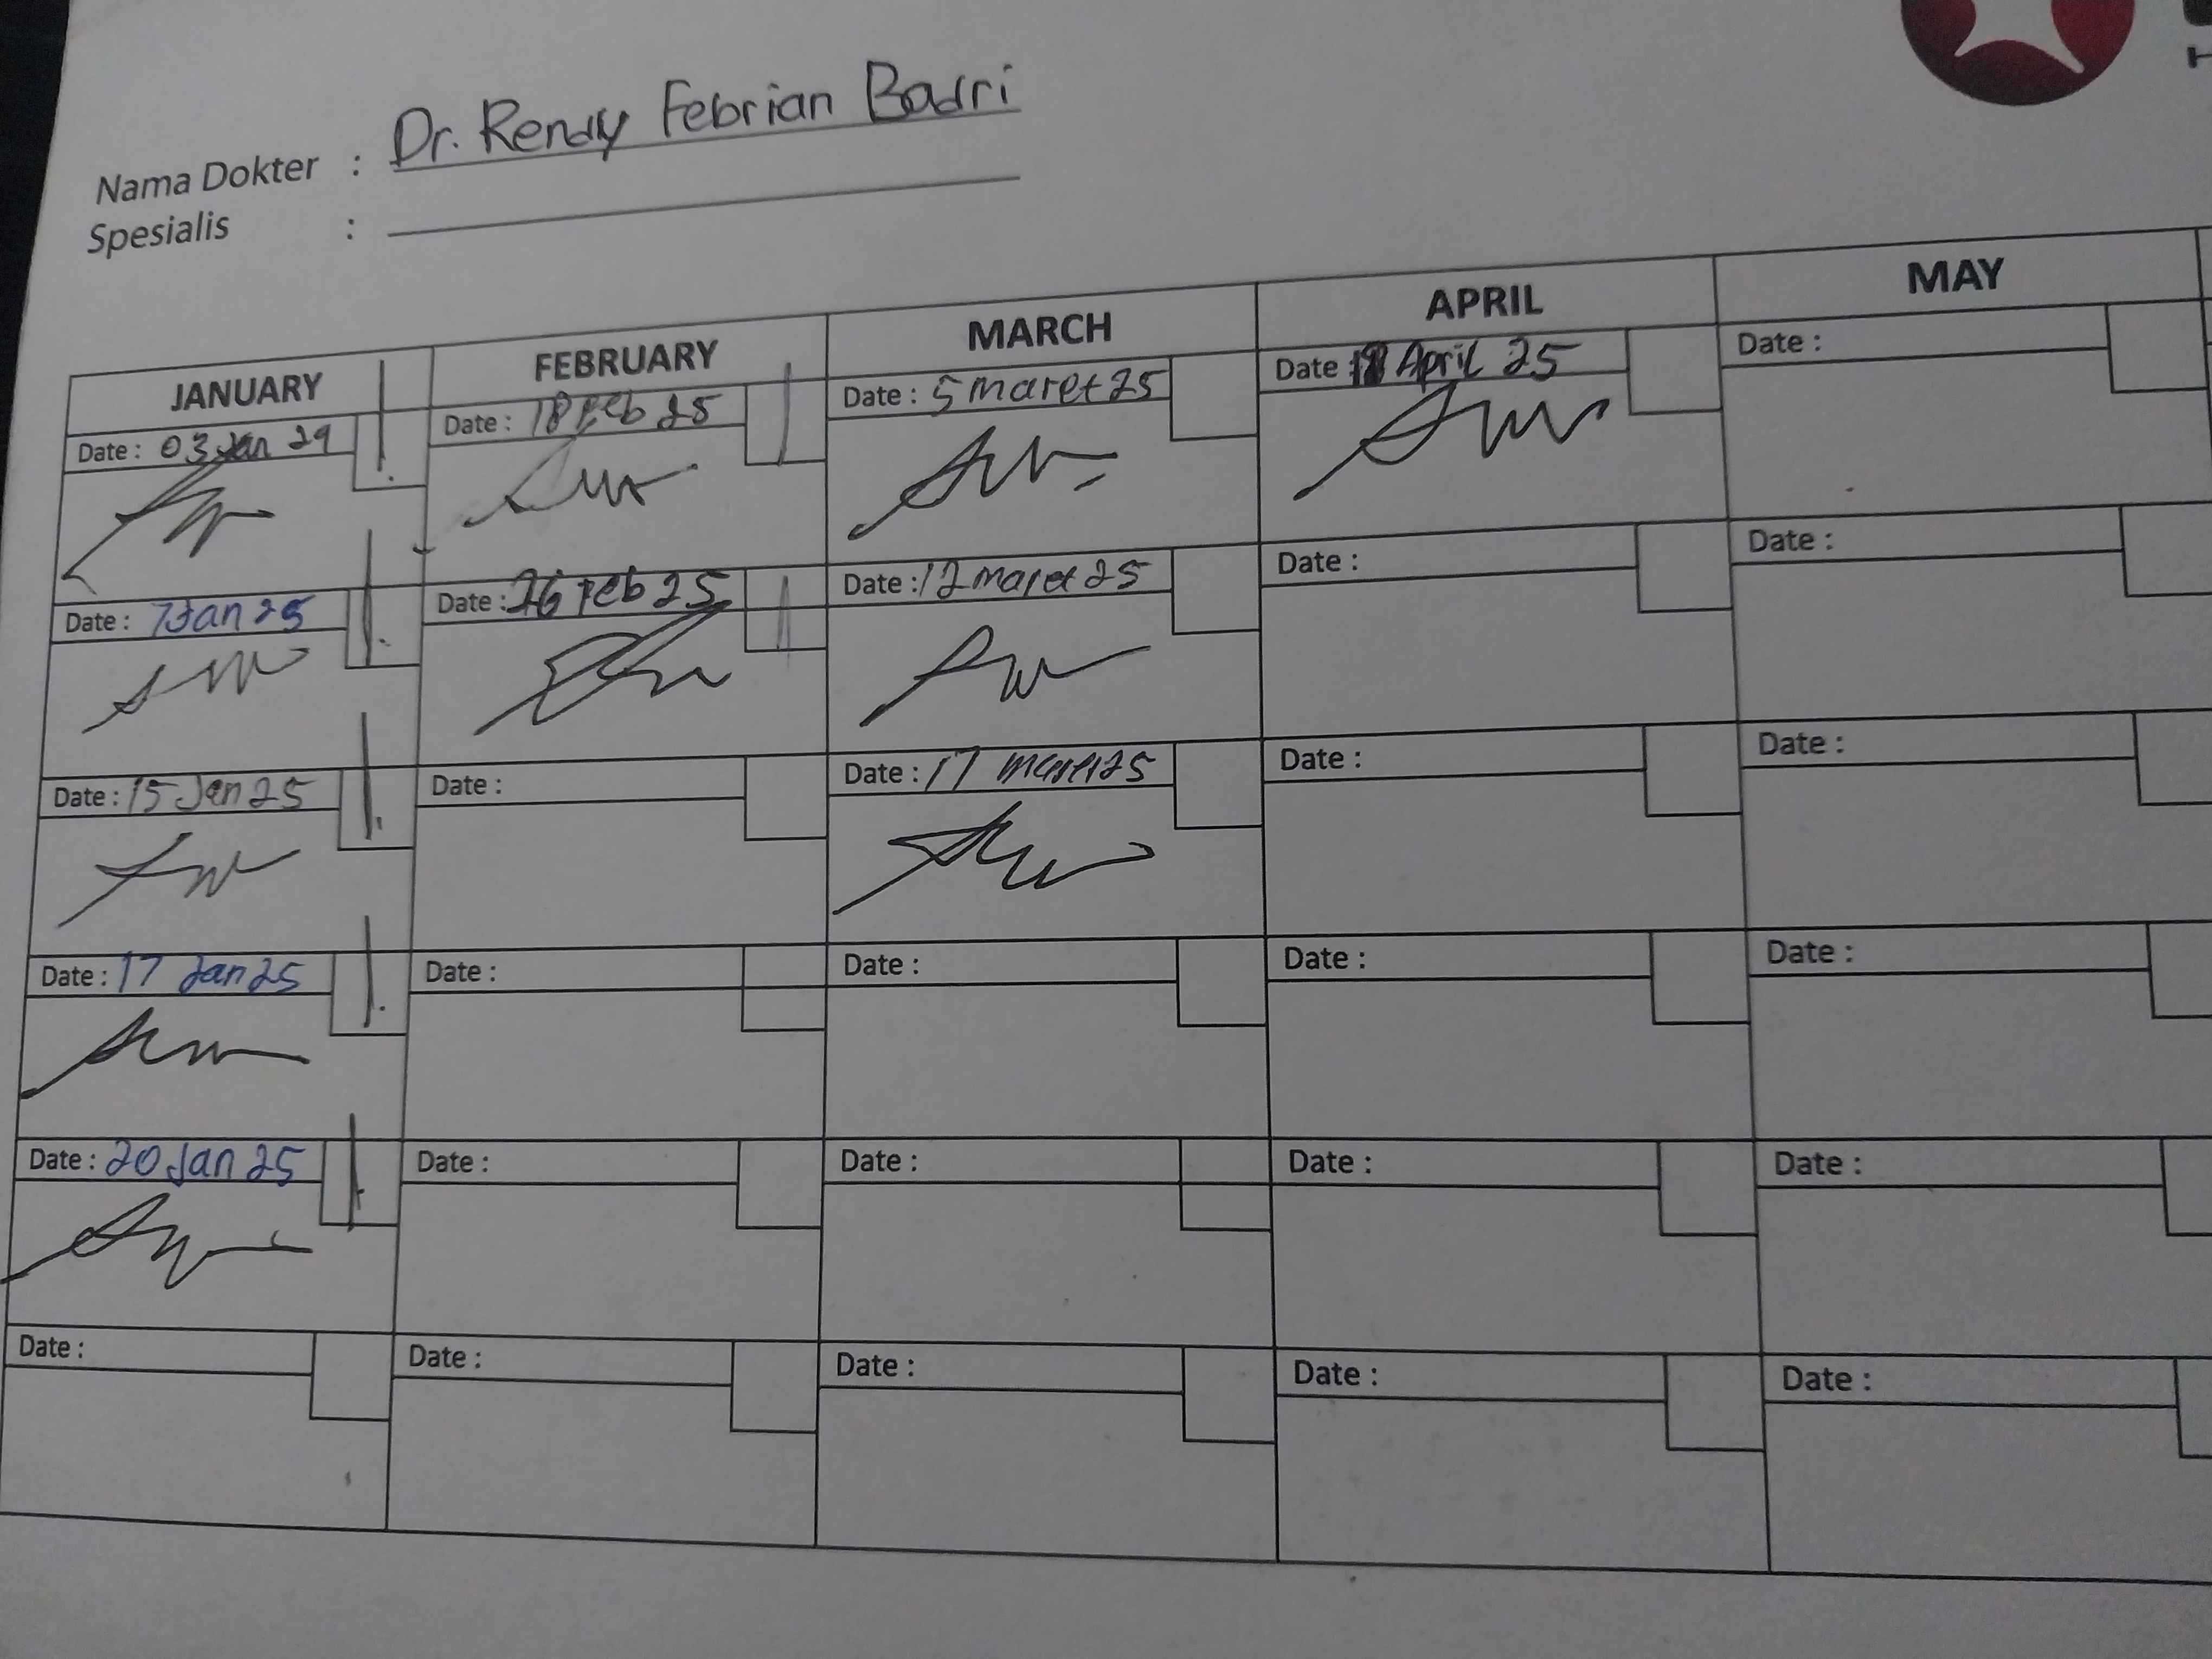 Nama Dokter : Dr. Rendy Febrian Badri
Spesialis :
JANUARY FEBRUARY MARCH APRIL MAY
Date : 03 Jan 29 Date : 18 Feb 25 Date : 5 maret 25 Date April 25 Date :
Date : 7 Jan 25 Date : 26 Feb 25 Date : 12 maret 25 Date : Date :
Date : 15 Jan 25 Date : Date : 17 maret 25 Date : Date :
Date : 17 Jan 25 Date : Date : Date : Date :
Date : 20 Jan 25 Date : Date : Date : Date :
Date : Date : Date : Date : Date :